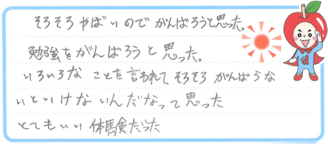 そろそろやばいのでがんばろうと思った。
勉強をがんばろうと思った。
いろいろなことを言われてそろそろがんばらな
いといけないんだなって思った
とてもいい体験だった